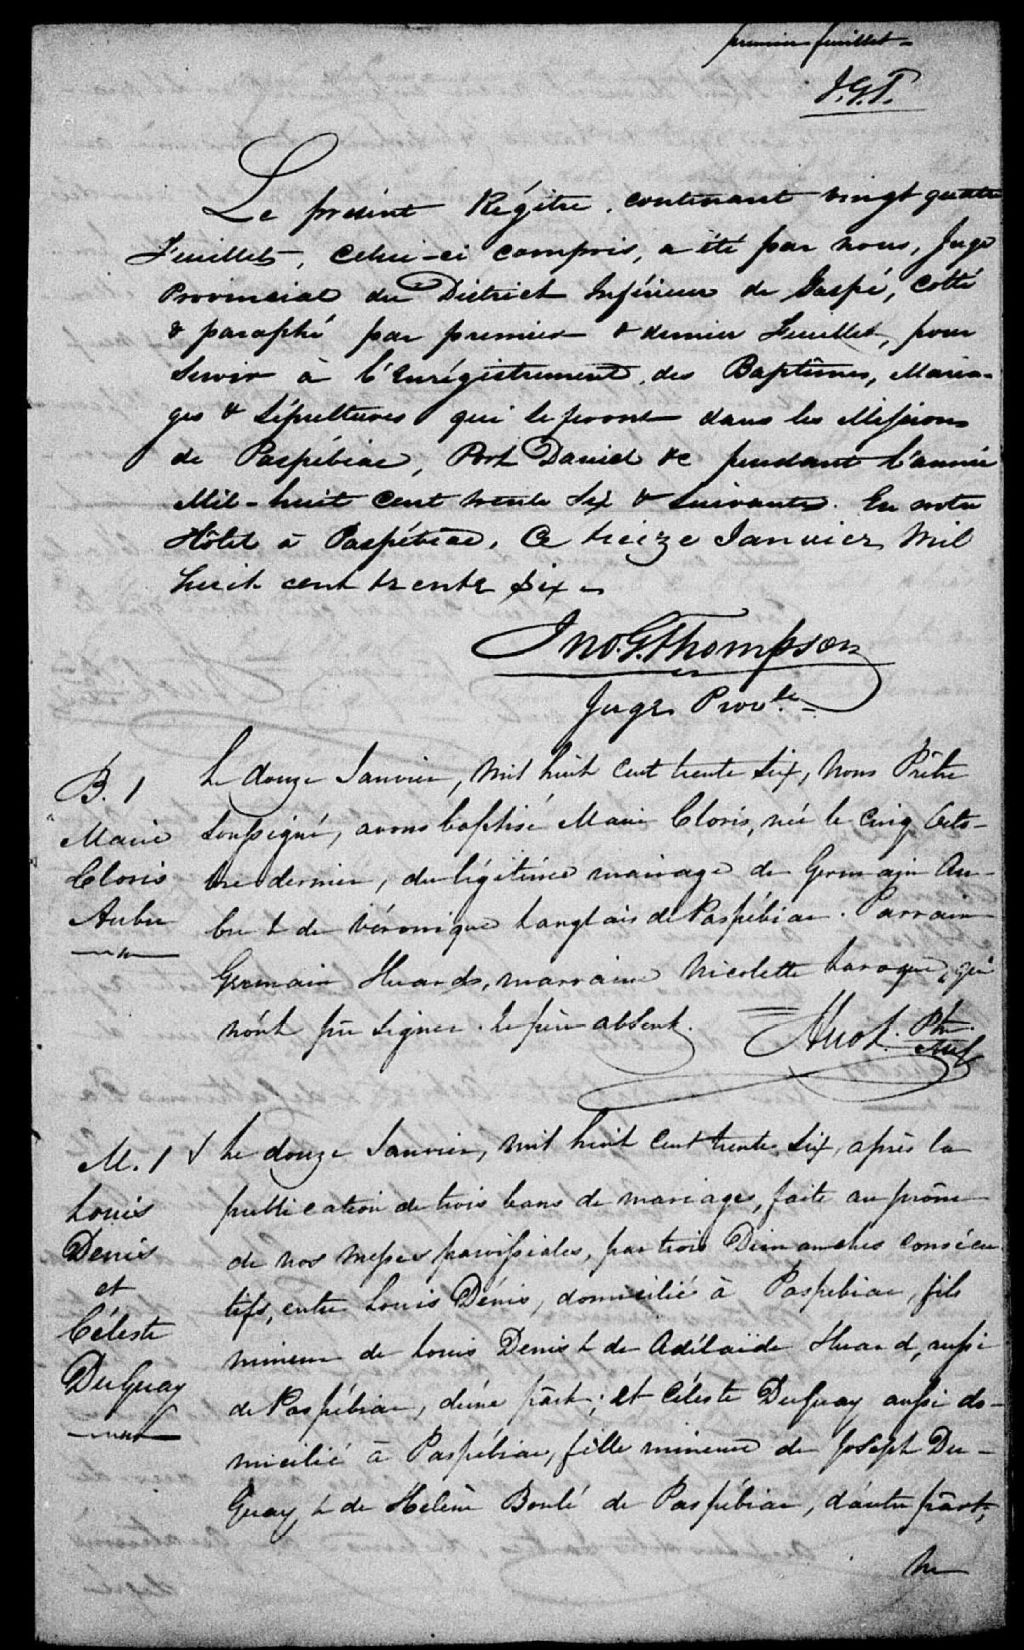 premier feuillet
J.G.T.
Le présent Régitre, contenant vingt quatre
Feuillets, celui-ci compris, a été par nous, Juge
Provincial du District Inférieur de Gaspé, Cotté
& paraphé par premier & dernier Feuillet, pour
Servir à l'Enrégistrement des Baptêmes, Maria-
ges & Sépultures qui se feront dans les Missions
de Paspébiac, Port Daniel &c pendant l'année
Mil-huit cent trente Six & suivante. En notre
Hôtel à Paspébiac, Ce treize Janvier Mil
huit cent trente six
Jno. G. Thompson
Juge Prov.le
B. 1
Marie
Cloris
Aubu
Le douze Janvier, mil huit cent trente six, nous Prêtre
Soussigné, avons baptisé Marie Cloris, née le cinq Octo-
bre dernier, du légitime mariage de Germain Au-
bu & de Véronique Langlais de Paspébiac. Parrain
Germain Huards, marraine Nicolette Laroque, qui
n'ont pu signer. Le père absent.
Huot. Ptr.
Miss
M. 1
Louis
Denis
et
Céleste
DuGuay
Le douze Janvier, mil huit cent trente six, après la
publication de trois bans de mariage, faite au prône
de nos messes paroissiales, par trois Dimanches consécu
tifs, entre Louis Dénis, domicilié à Paspébiac, fils
mineur de Louis Denis & de Adélaïde Huard, aussi
de Paspébiac, d'une part; et Céleste DuGuay aussi do-
micilié à Paspébiac, fille mineure de Joseph Du-
Guay & de Helène Boulé de Paspébiac, d'autre part,
ne